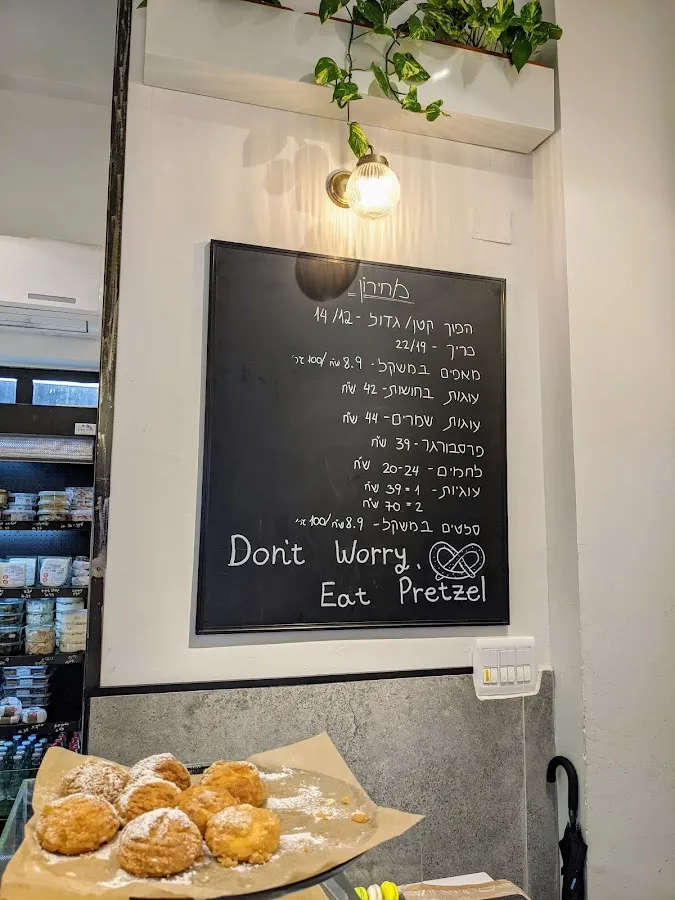 מחירון
הפוך קטן/גדול - 14/12
כריך - 22/19
מאפים במשקל - 8.9 ש״ח/100 גר׳
עוגות בחושות - 42 ש״ח
עוגות שמרים - 44 ש״ח
פרסבורגר - 39 ש״ח
לחמים - 20-24 ש״ח
עוגיות - 1 = 39 ש״ח
2 = 70 ש״ח
סלטים במשקל - 8.9 ש״ח/100 גר׳
Don't Worry,
Eat Pretzel